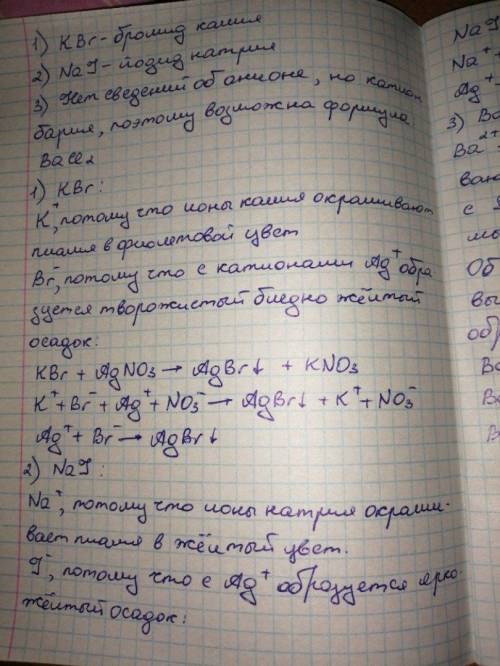 1) KBr - бромид калия
2) NaI - йодид натрия
3) Нет сведений об анионе, но катион
бария, поэтому возможна формула
BaCl2
1) KBr:
K+, потому что ионы калия окрашивают
пламя в фиолетовой цвет
Br-, потому что с катионами Ag+ обра
зуется творожистый бледно жёлтый
осадок:
KBr + AgNO3 → AgBr↓ + KNO3
K+ + Br- + Ag+ + NO3- → AgBr↓ + K+ + NO3-
Ag+ + Br- → AgBr↓
2) NaI:
Na+, потому что ионы натрия окраши-
вает пламя в жёлтый цвет.
I-, потому что с Ag+ образуется ярко-
жёлтый осадок:
NaI
Na+ +
Ag+
3) Ba
Ba2+
ван
с
Об
вы
обр
Ba
Ba
Ba